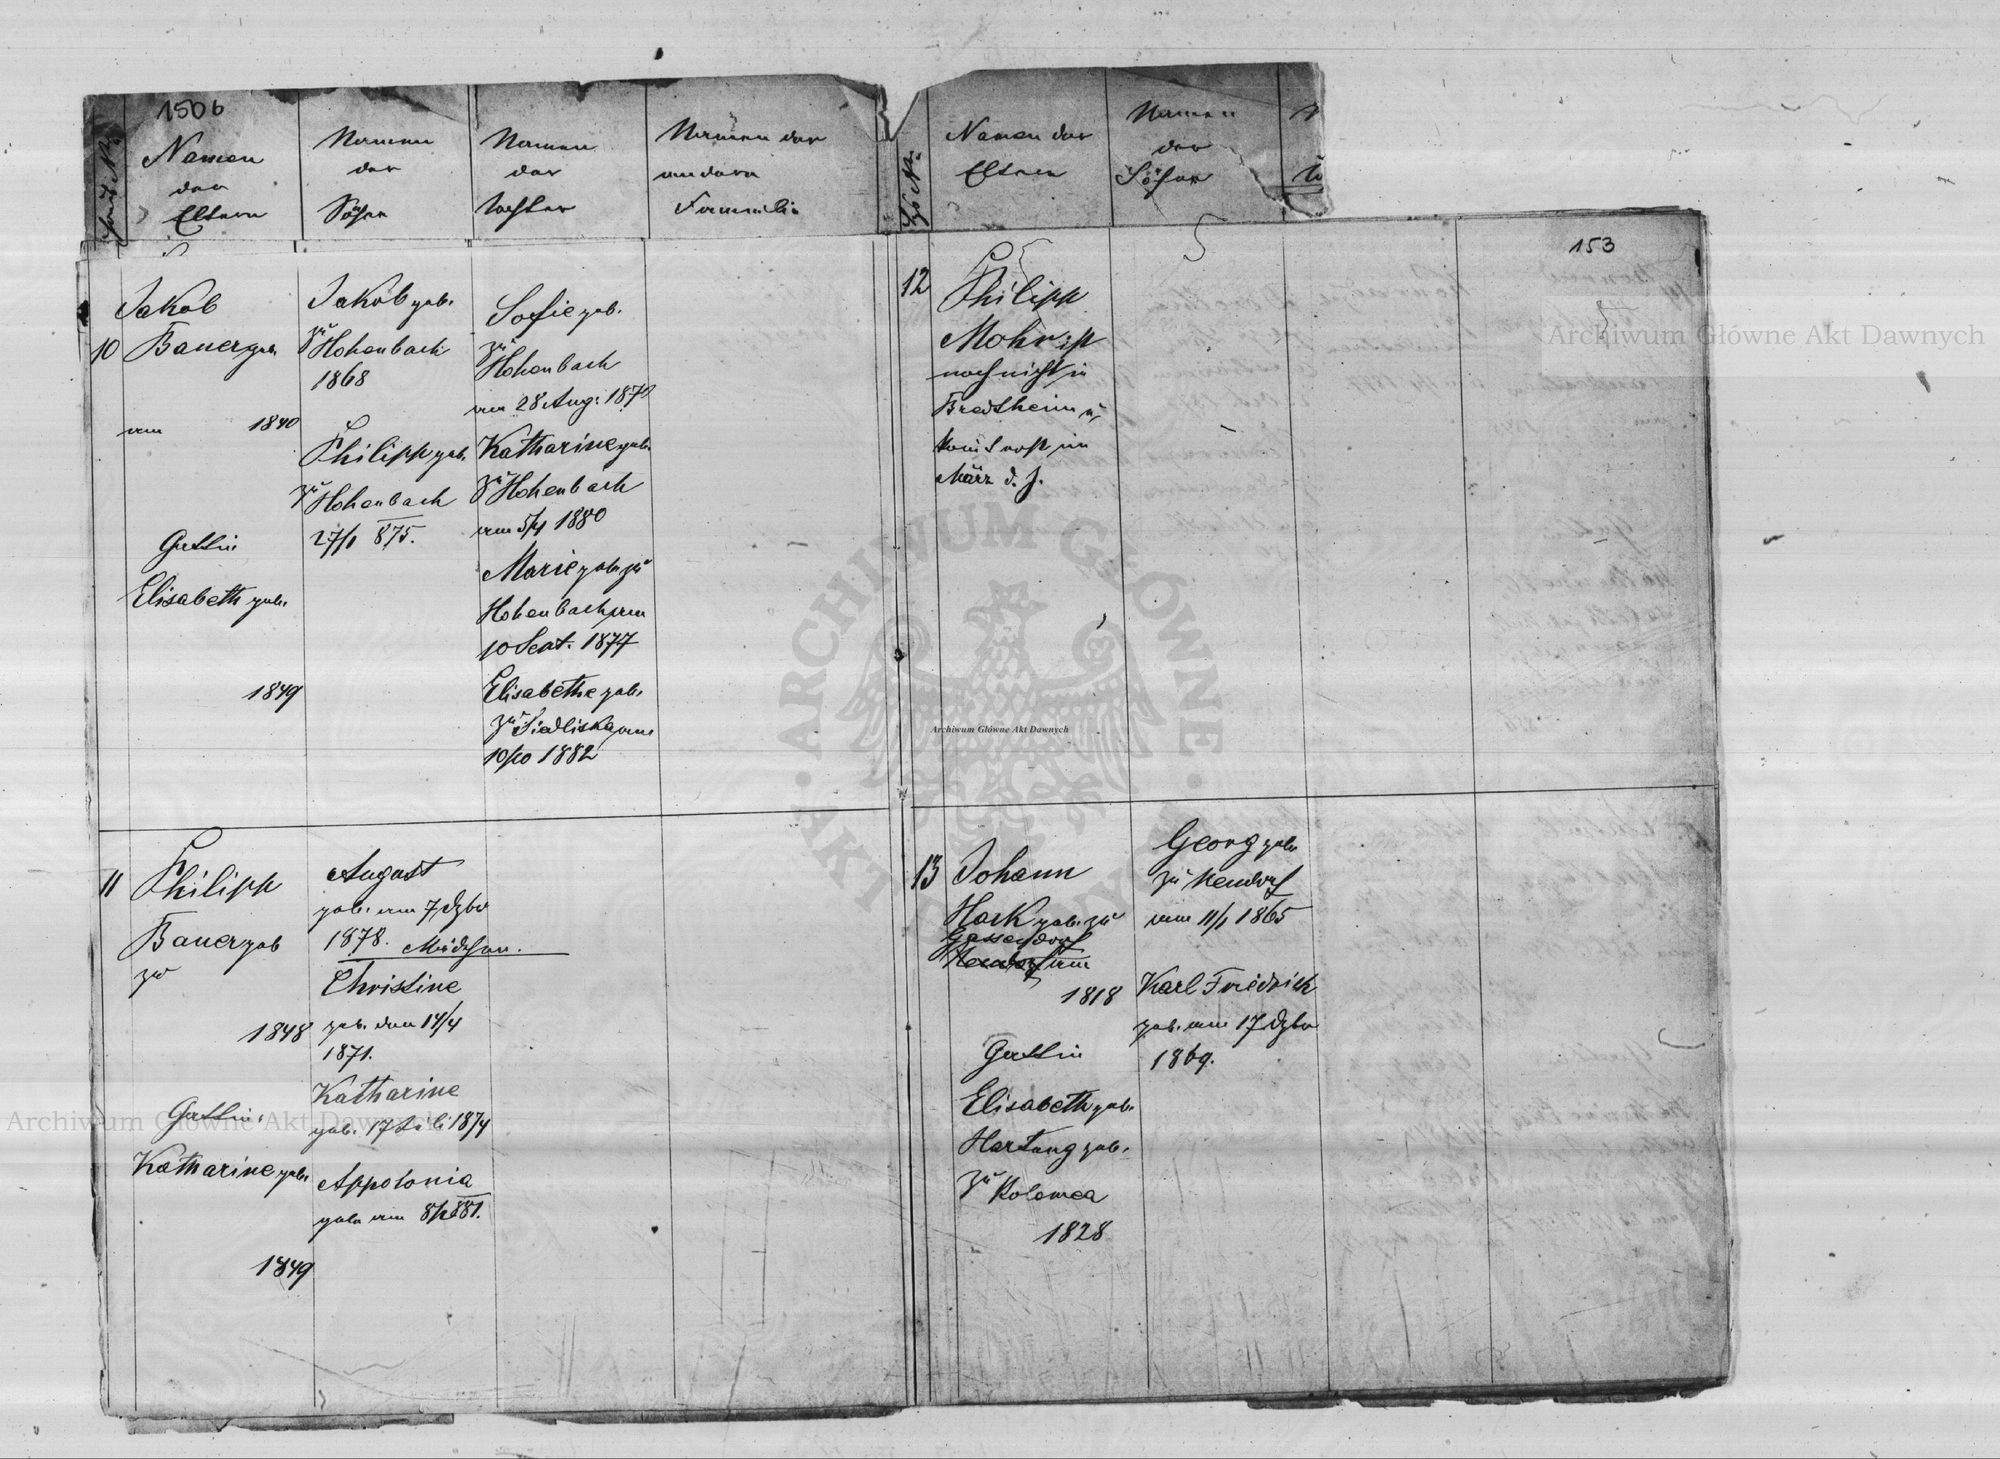 150b
Haus Nr
Namen
der
Eltern
Namen
der
Söhne
Namen
der
Töchter
Namen der
andern
Familie
Jakob
10 Bauer geb.
am 1840
Gattin
Elisabeth geb.
1849
Jakob geb.
zu
Hohenbach
1868
Philipp geb.
zu
Hohenbach
27/1 875.
Sofie geb.
zu
Hohenbach
am 28 Aug. 187
Katharine geb.
zu Hohenbach
am 5/4 1880
Marie geb. zu
Hohenbach am
10 Sept. 1877
Elisabethe geb.
zu Siedliska am
10/10 1882
11 Philipp
Bauer geb
zu
1848
Gattin
Katharine geb.
1849
August
geb. am 7 Dzbr
1878. Mädchen.
Christine
geb. den 14/4
1871.
Katharine
geb. 17 Juli 1874
Appolonia
geb. am 881.
Hs Nr.
Namen der
Eltern
Namen
der
Söhne
153
12 Philipp
Mohr ist
noch nicht in
Bredtheim u.
komt erst im
März d. J.
13 Johann
Hark geb. zu
Gassendorf
Neudorf am
1818
Gattin
Elisabeth geb.
Hartung geb.
zu Kolomea
1828
Georg geb.
zu Neudorf
am 11/1 1865
Karl Friedrich
geb. am 17 Dzbr
1869.
Archiwum Główne Akt Dawnych
Archiwum Główne Akt Dawnych
Archiwum Główne Akt Dawnych
ARCHIWUM GŁÓWNE AKT